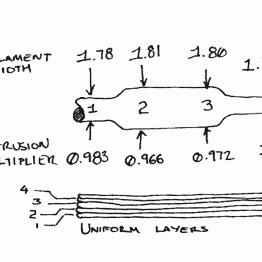 LAMENT 1.78 1.81 1.80 1.
IDTH
1 2 3
TRUSION
LTIPLIER 0.983 0.966 0.972
4
3
2
1
UNIFORM LAYERS